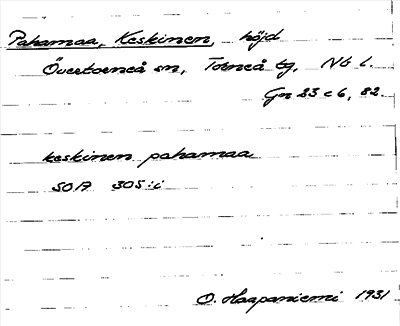 Pahamaa, Keskinen, höjd
Övertorneå sn, Torneå tg, Nb l.
Gn 23 c 6, 82.
keskinen pahamaa
SOIA 305:i
O. Haapaniemi 1931